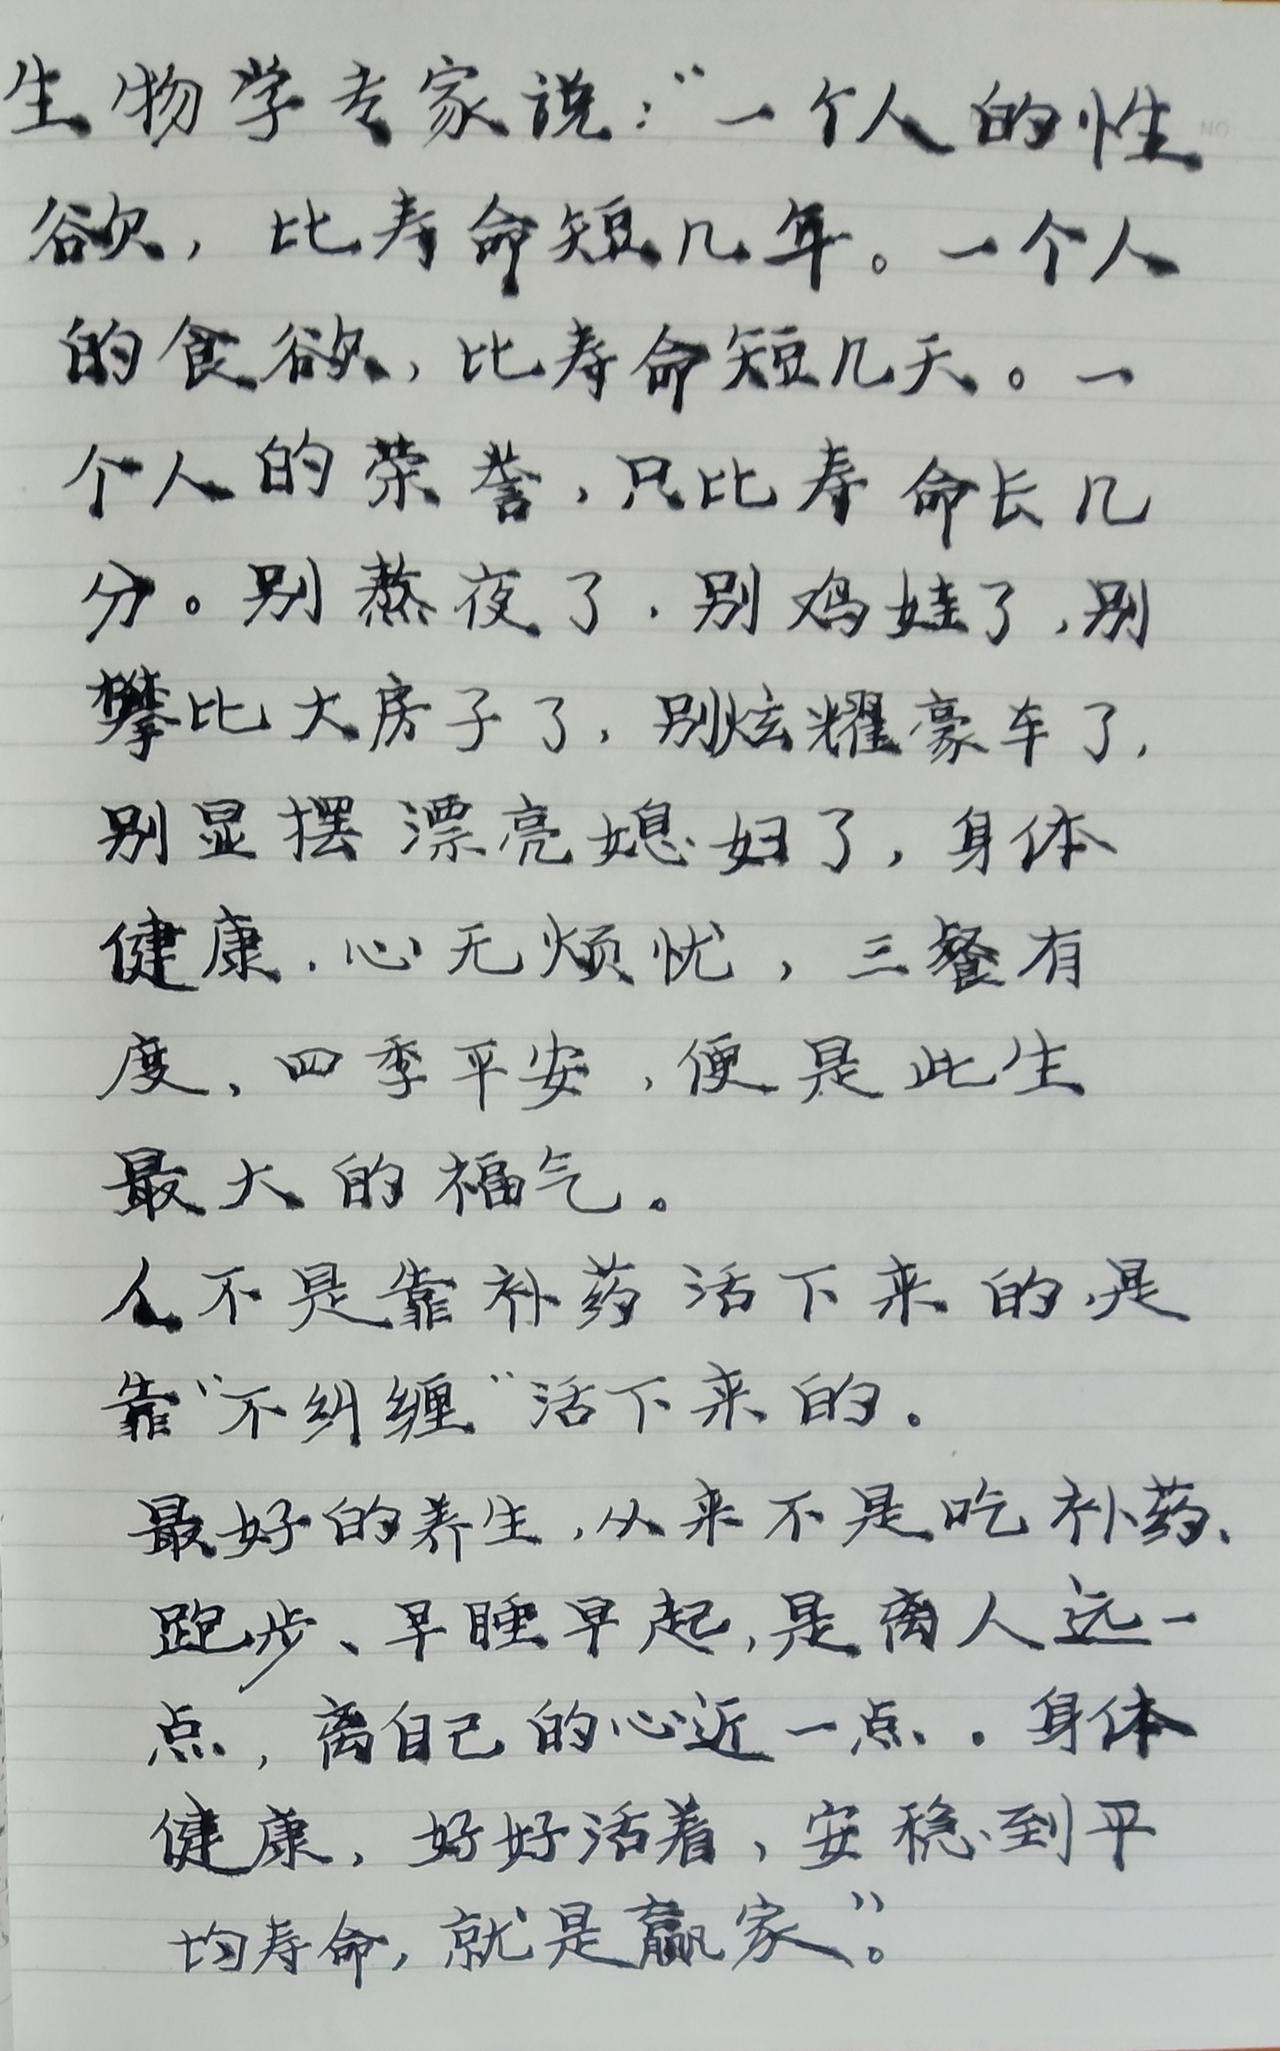 生物学专家说：“一个人的性
欲，比寿命短几年。一个人
的食欲，比寿命短几天。一
个人的荣誉，只比寿命长几
分。别熬夜了，别鸡娃了，别
攀比大房子了，别炫耀豪车了，
别显摆漂亮媳妇了，身体
健康，心无烦忧，三餐有
度，四季平安，便是此生
最大的福气。
人不是靠补药活下来的，是
靠“不纠缠”活下来的。
最好的养生，从来不是吃补药、
跑步、早睡早起，是离人远一
点，离自己的心近一点。身体
健康，好好活着，安稳到平
均寿命，就是赢家”。